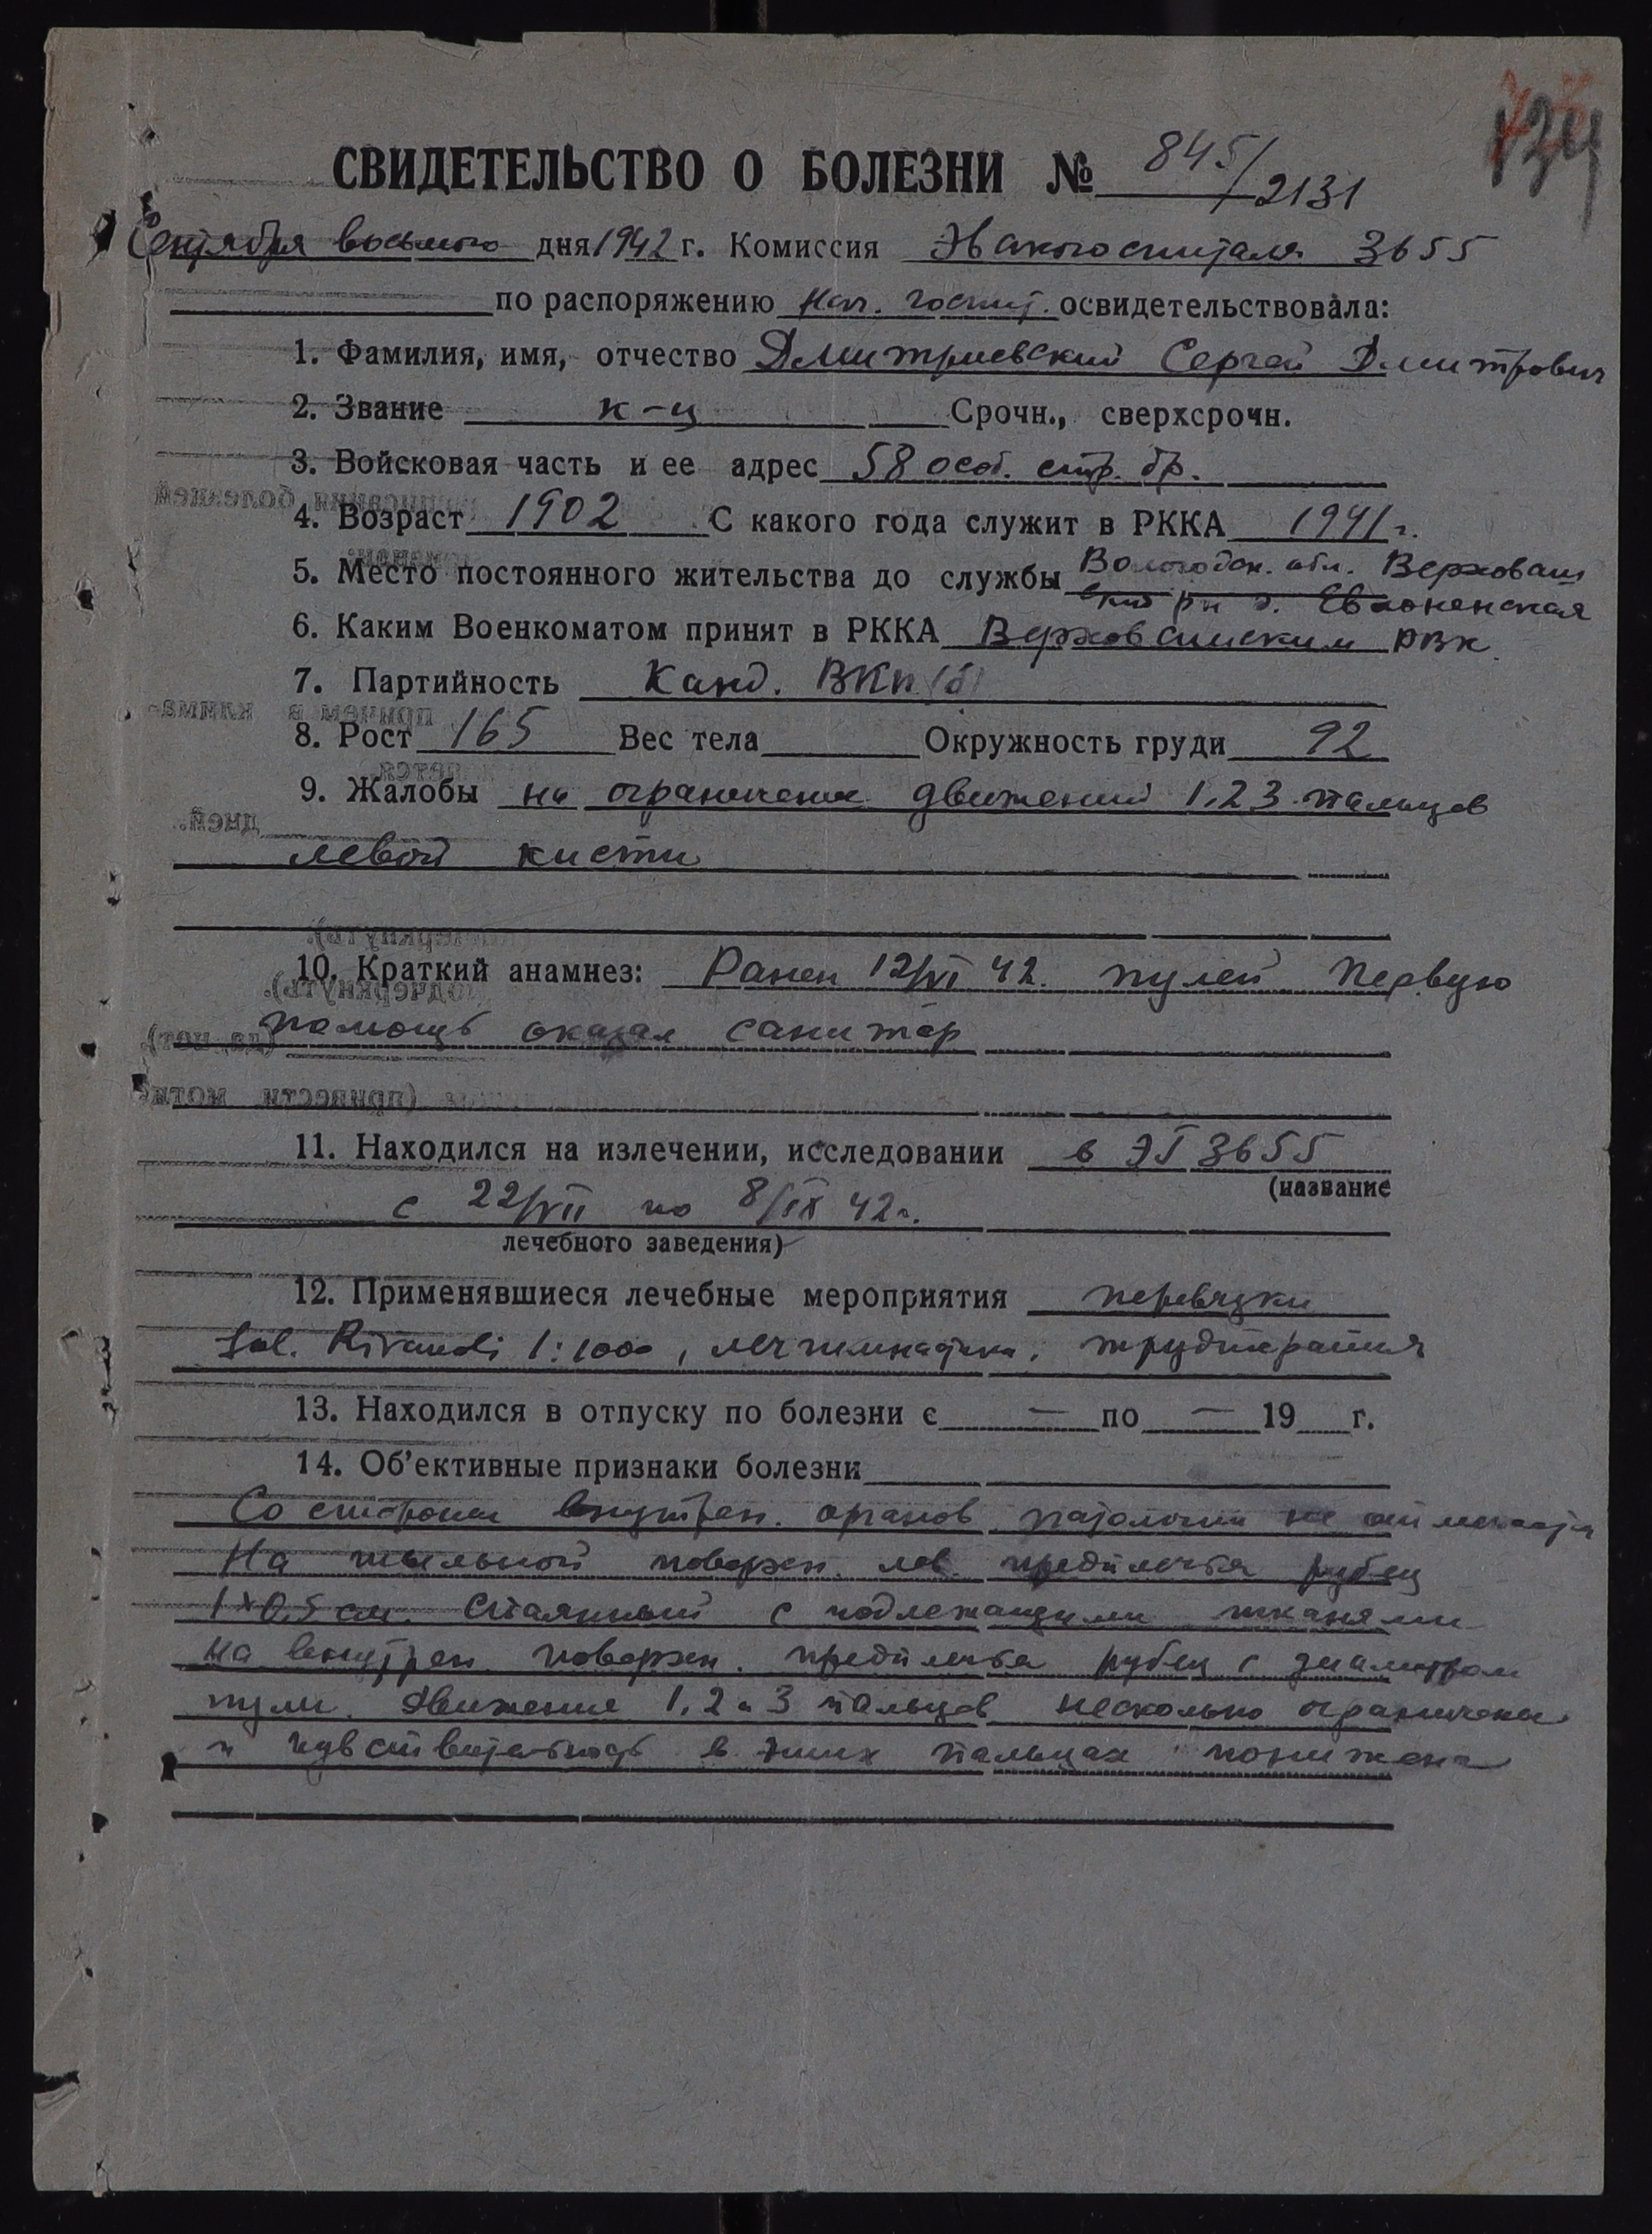 134
СВИДЕТЕЛЬСТВО О БОЛЕЗНИ № 845/2131
Сентября восьмого дня 1942 г. Комиссия Эвакогоспиталя 3655
по распоряжению нач. госпит. освидетельствовала:
1. Фамилия, имя, отчество Дмитриевский Сергей Дмитрович
2. Звание к-ц Срочн., сверхсрочн.
3. Войсковая часть и ее адрес 58 особ. стр. бр.
4. Возраст 1902 С какого года служит в РККА 1941 г.
5. Место постоянного жительства до службы Вологодск. обл. Верховаш
ский р-н д.
6. Каким Военкоматом принят в РККА Верховажским РВК
7. Партийность Канд. ВКП(б)
8. Рост 165 Вес тела Окружность груди 92
9. Жалобы на ограничение движений 1.2 3 пальцев
левой кисти
10. Краткий анамнез: Ранен 12/VI 42. пулей Первую
помощь оказал санитар
11. Находился на излечении, исследовании в ЭГ 3655
(название
с 22/VII по 8/IX 42 г.
лечебного заведения)
12. Применявшиеся лечебные мероприятия перевязки
Sol. Rivanoli 1:1000, лечгимнастика, трудтерапия
13. Находился в отпуску по болезни с — по — 19 г.
14. Об'ективные признаки болезни
Со стороны внутрен. органов патологии не отмечается
На тыльной поверхн. лев. предплечья рубец
1×0,5 см. спаянный с подлежащими тканями
на внутрен. поверхн. предплечья рубец с диаметром
пули. Движение 1, 2 и 3 пальцев несколько ограничены
и чувствительность в этих пальцах понижена